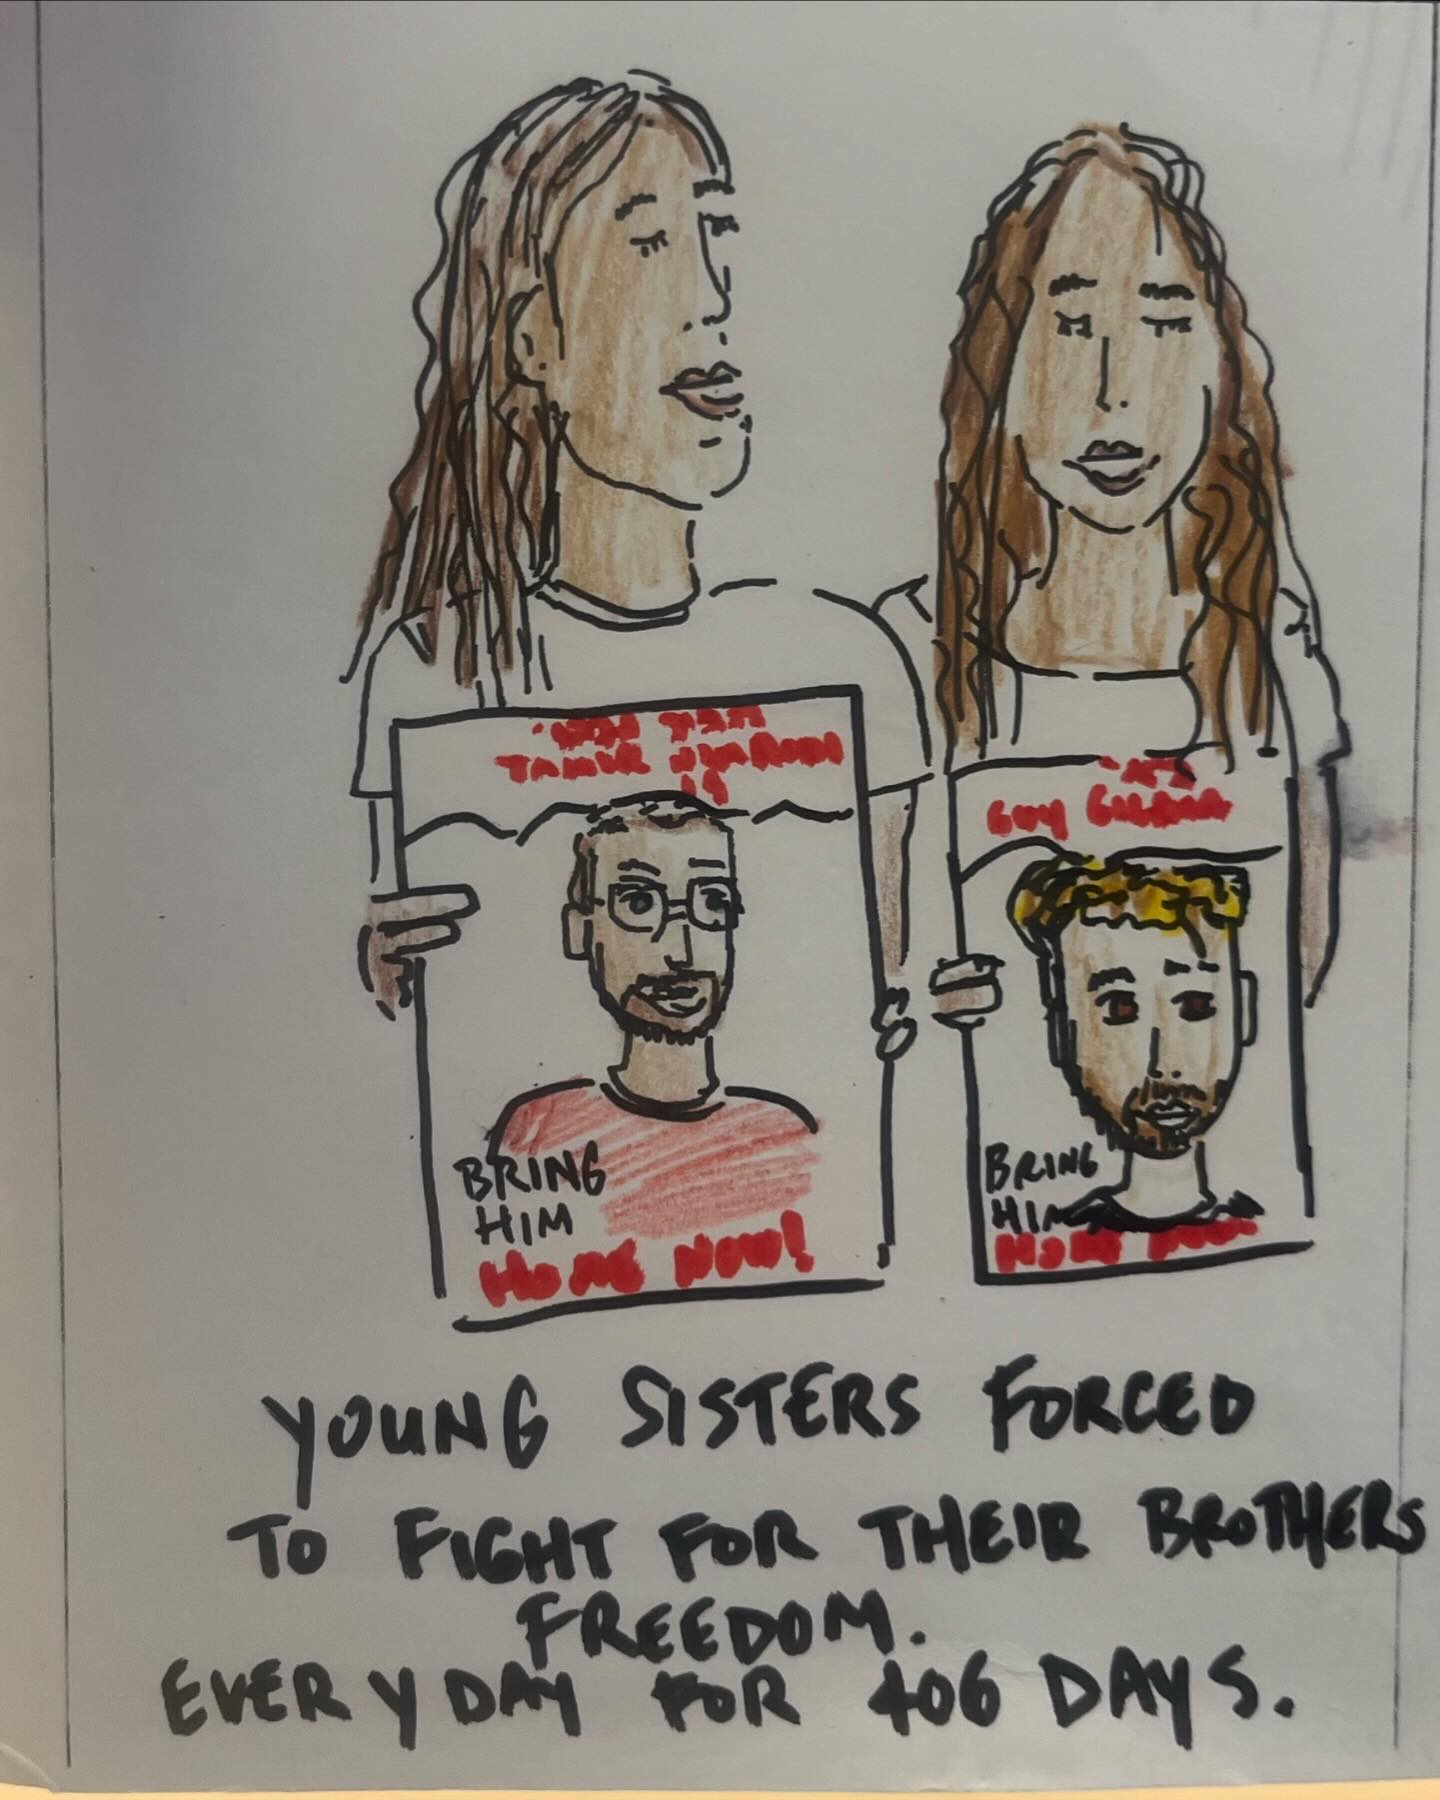 TAMIR
19
BRING
HIM
HOME NOW!
GUY GILBOA
BRING
HIM
HOME NOW
YOUNG SISTERS FORCED
TO FIGHT FOR THEIR BROTHERS
FREEDOM.
EVERYDAY FOR 406 DAYS.